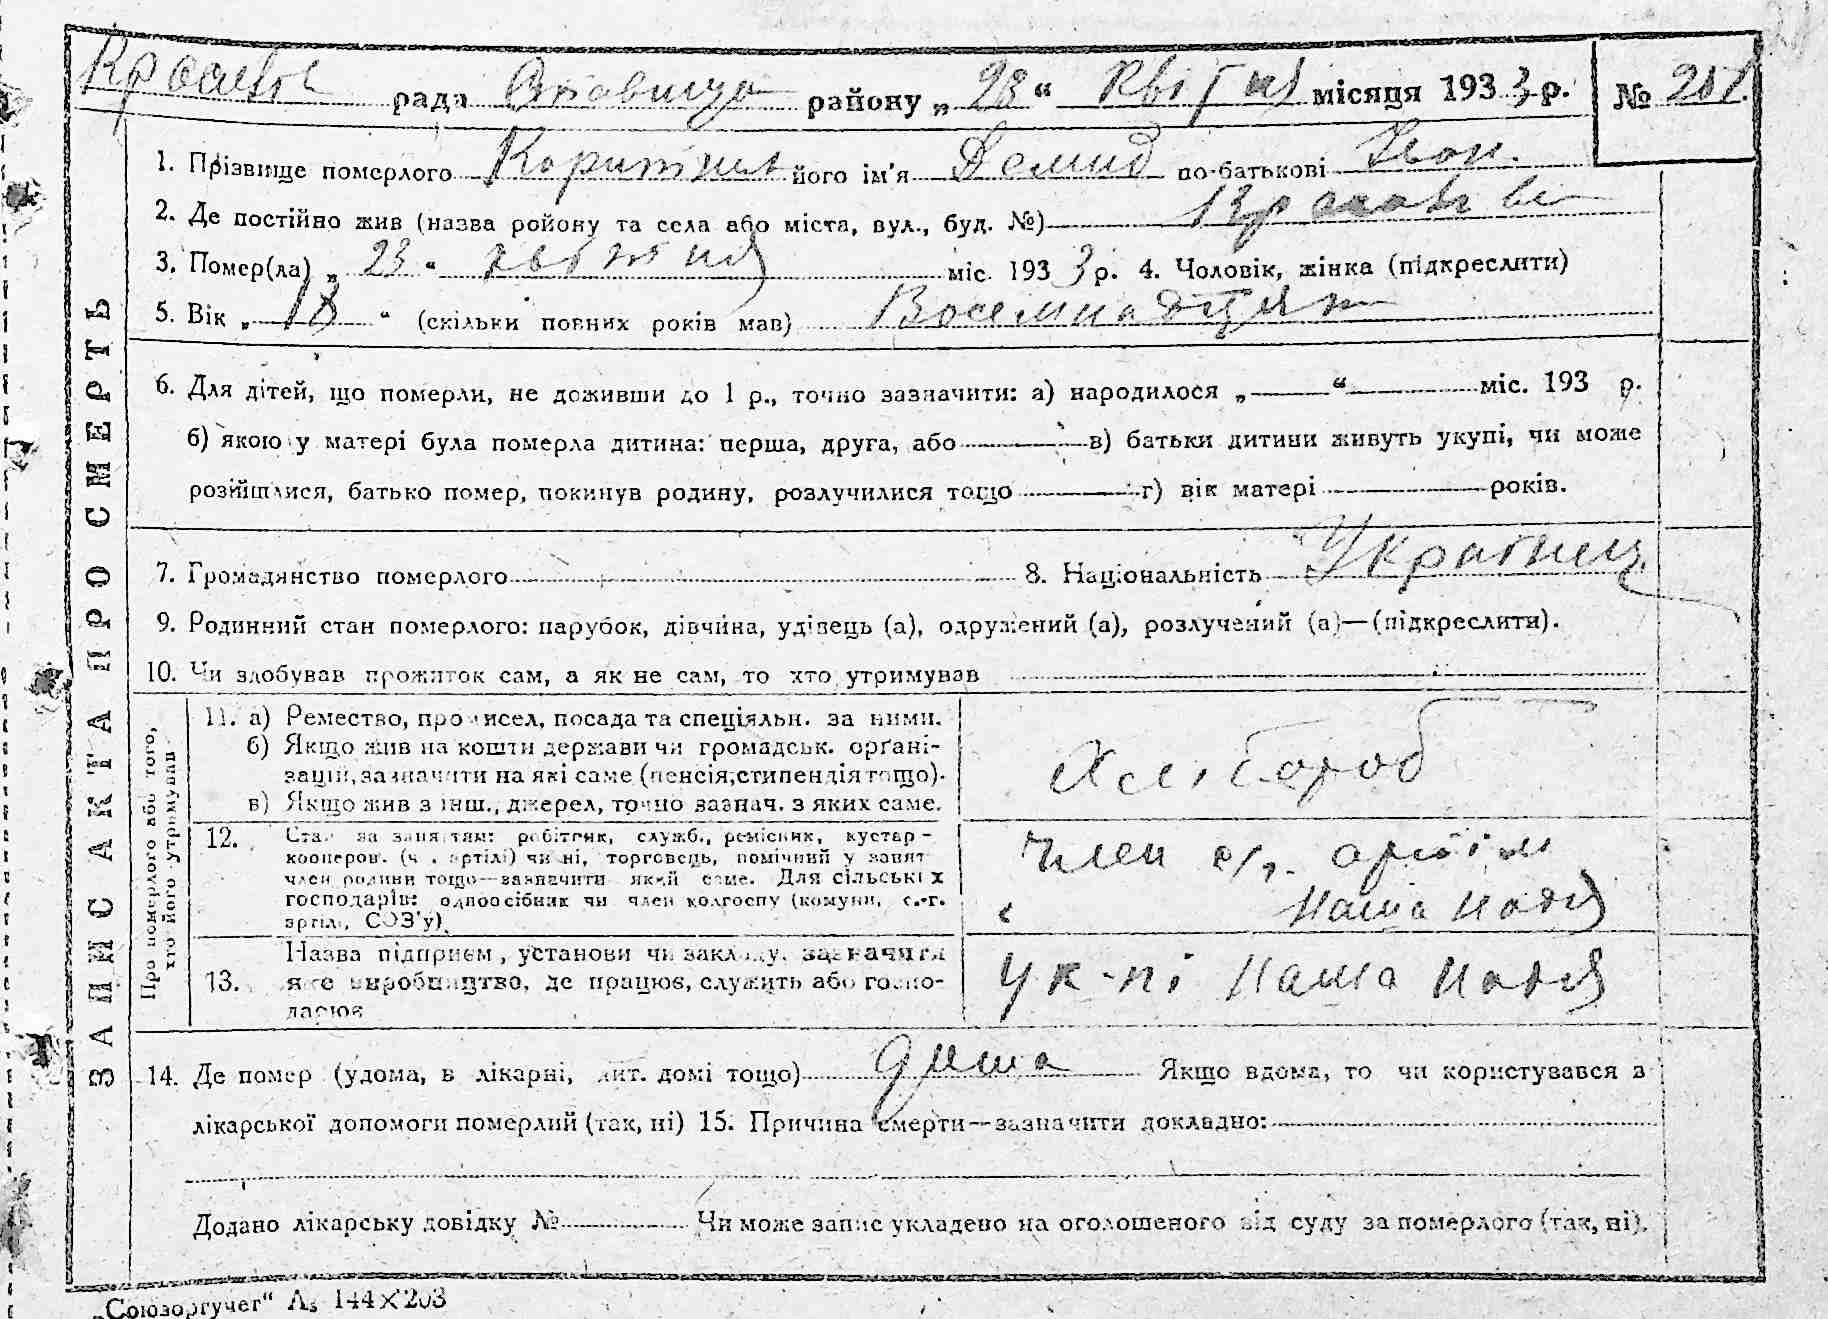 рада Ставищ району „ 23 “ Квітня місяця 1933 р. № 201.
1. Прізвище померлого його ім'я Демид по-батькові Іван.
2. Де постійно жив (назва ройону та села або міста, вул., буд. №)
3. Помер(ла) „ 23 “ квітня міс. 1933 р. 4. Чоловік, жінка (підкреслити)
5. Вік „ 18 “ (скільки повних років мав) Восемнадцять
6. Для дітей, що померли, не доживши до 1 р., точно зазначити: а) народилося „ “ міс. 193 р.
б) якою у матері була померла дитина: перша, друга, або в) батьки дитини живуть укупі, чи може
розійшлися, батько помер, покинув родину, розлучилися тощо г) вік матері років.
7. Громадянство померлого 8. Національність Українец
9. Родинний стан померлого: парубок, дівчина, удівець (а), одружений (а), розлучений (а)—(підкреслити).
10. Чи здобував прожиток сам, а як не сам, то хто утримував
ЗАПИС АКТА ПРО СМЕРТЬ
Про померлого або того,
хто його утримував
11. а) Ремество, промисел, посада та спеціяльн. за ними.
б) Якщо жив на кошти держави чи громадськ. орґані-
зації, зазначити на які саме (пенсія, стипендія тощо).
в) Якщо жив з інш., джерел, точно зазнач. з яких саме.
Хлібороб
12. Стан за заняттям: робітник, служб., ремісник, кустар-
кооперов. (ч. артілі) чи ні, торговець, помічний у занят
член родини тощо—зазначити який саме. Для сільських
господарів: одноосібник чи член колгоспу (комуни, с.-г.
артілі, СОЗ'у).
член с/г. артілі
Наша Надія
13. Назва підприєм, установи чи закладу, зазначити
яке виробництво, де працює, служить або госпо-
дарює
У к-пі Наша Надія
14. Де помер (удома, в лікарні, дит. домі тощо) дома Якщо вдома, то чи користувався з
лікарської допомоги померлий (так, ні) 15. Причина смерти—зазначити докладно:
Додано лікарську довідку № Чи може запис укладено на оголошеного від суду за померлого (так, ні).
„Союзоргучет“ А₅ 144×203